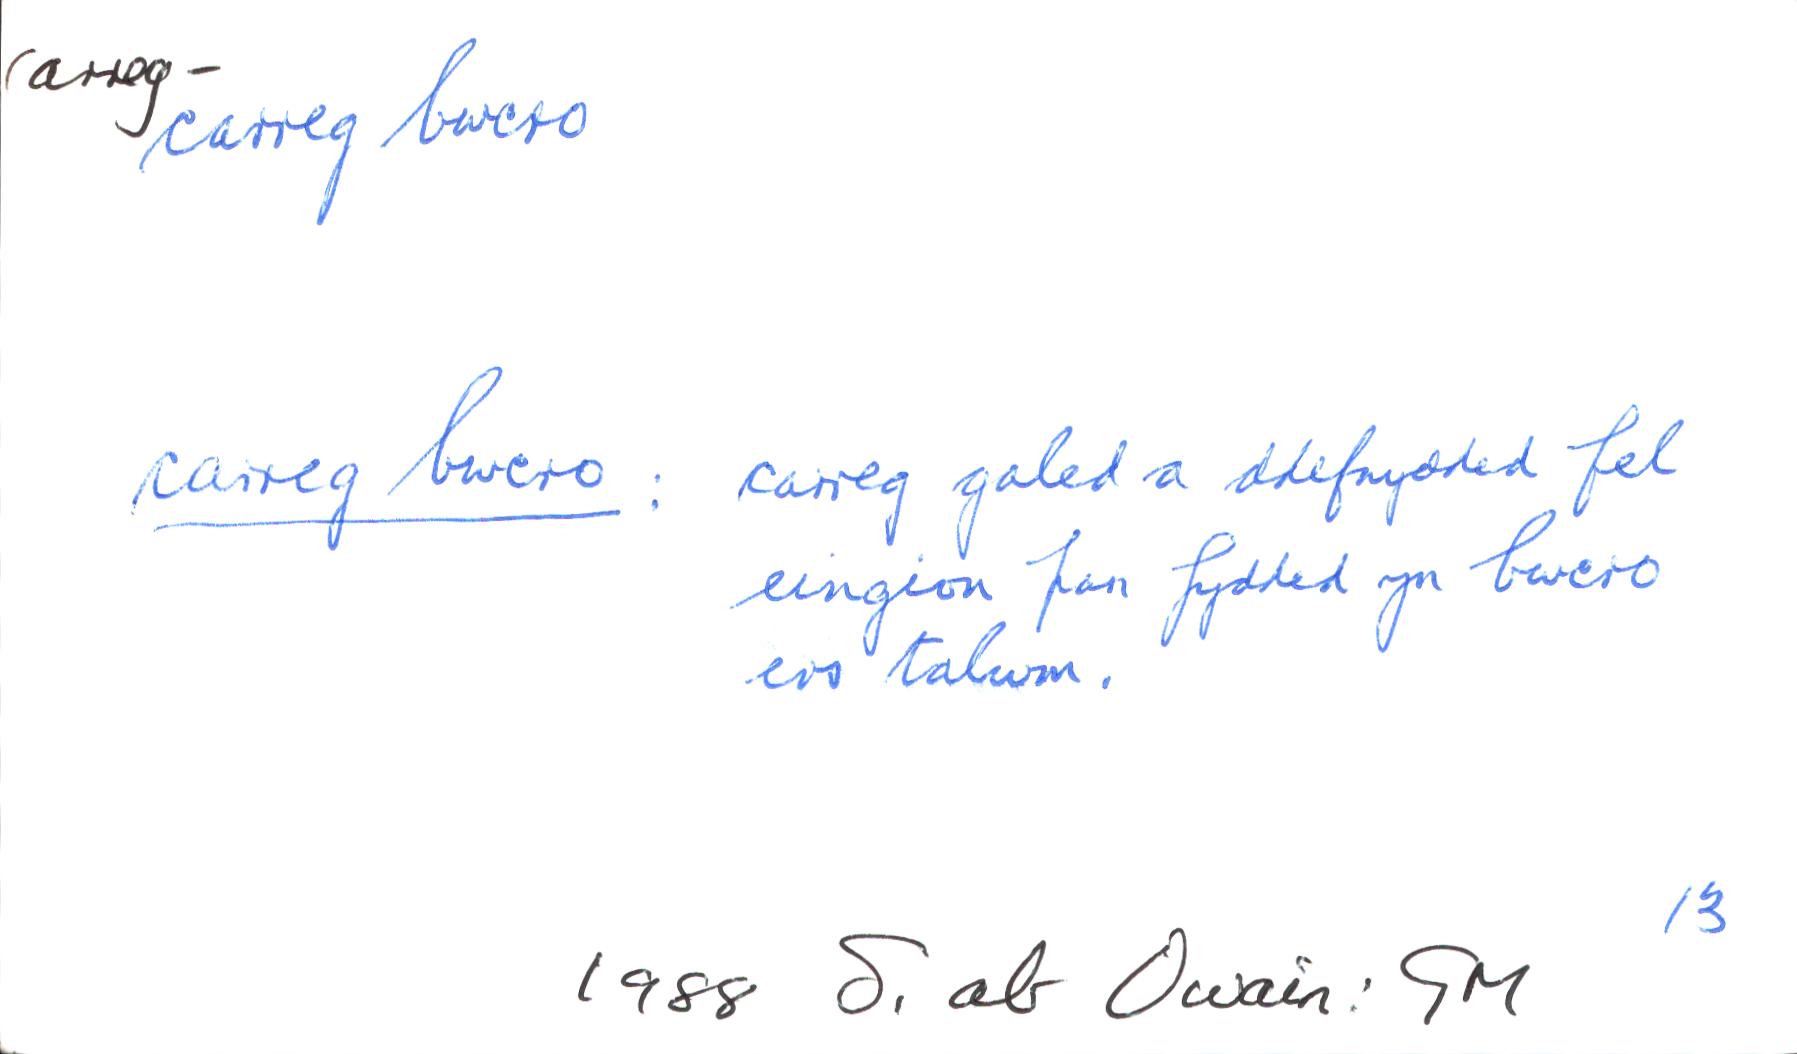 carreg-
carreg bwcro
carreg bwcro : carreg galed a ddefnydded fel
eingion pan fydded yn bwcro
ers talwm.
13
1988 S. ab Owain: GM